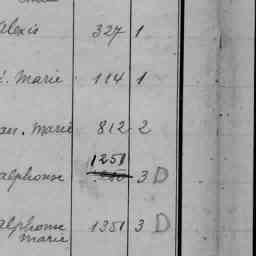 Alexis 327 1
Marie 114 1
Marie 812 2
1251
alphonse 3 D
alphonse 1351 3 D
Marie